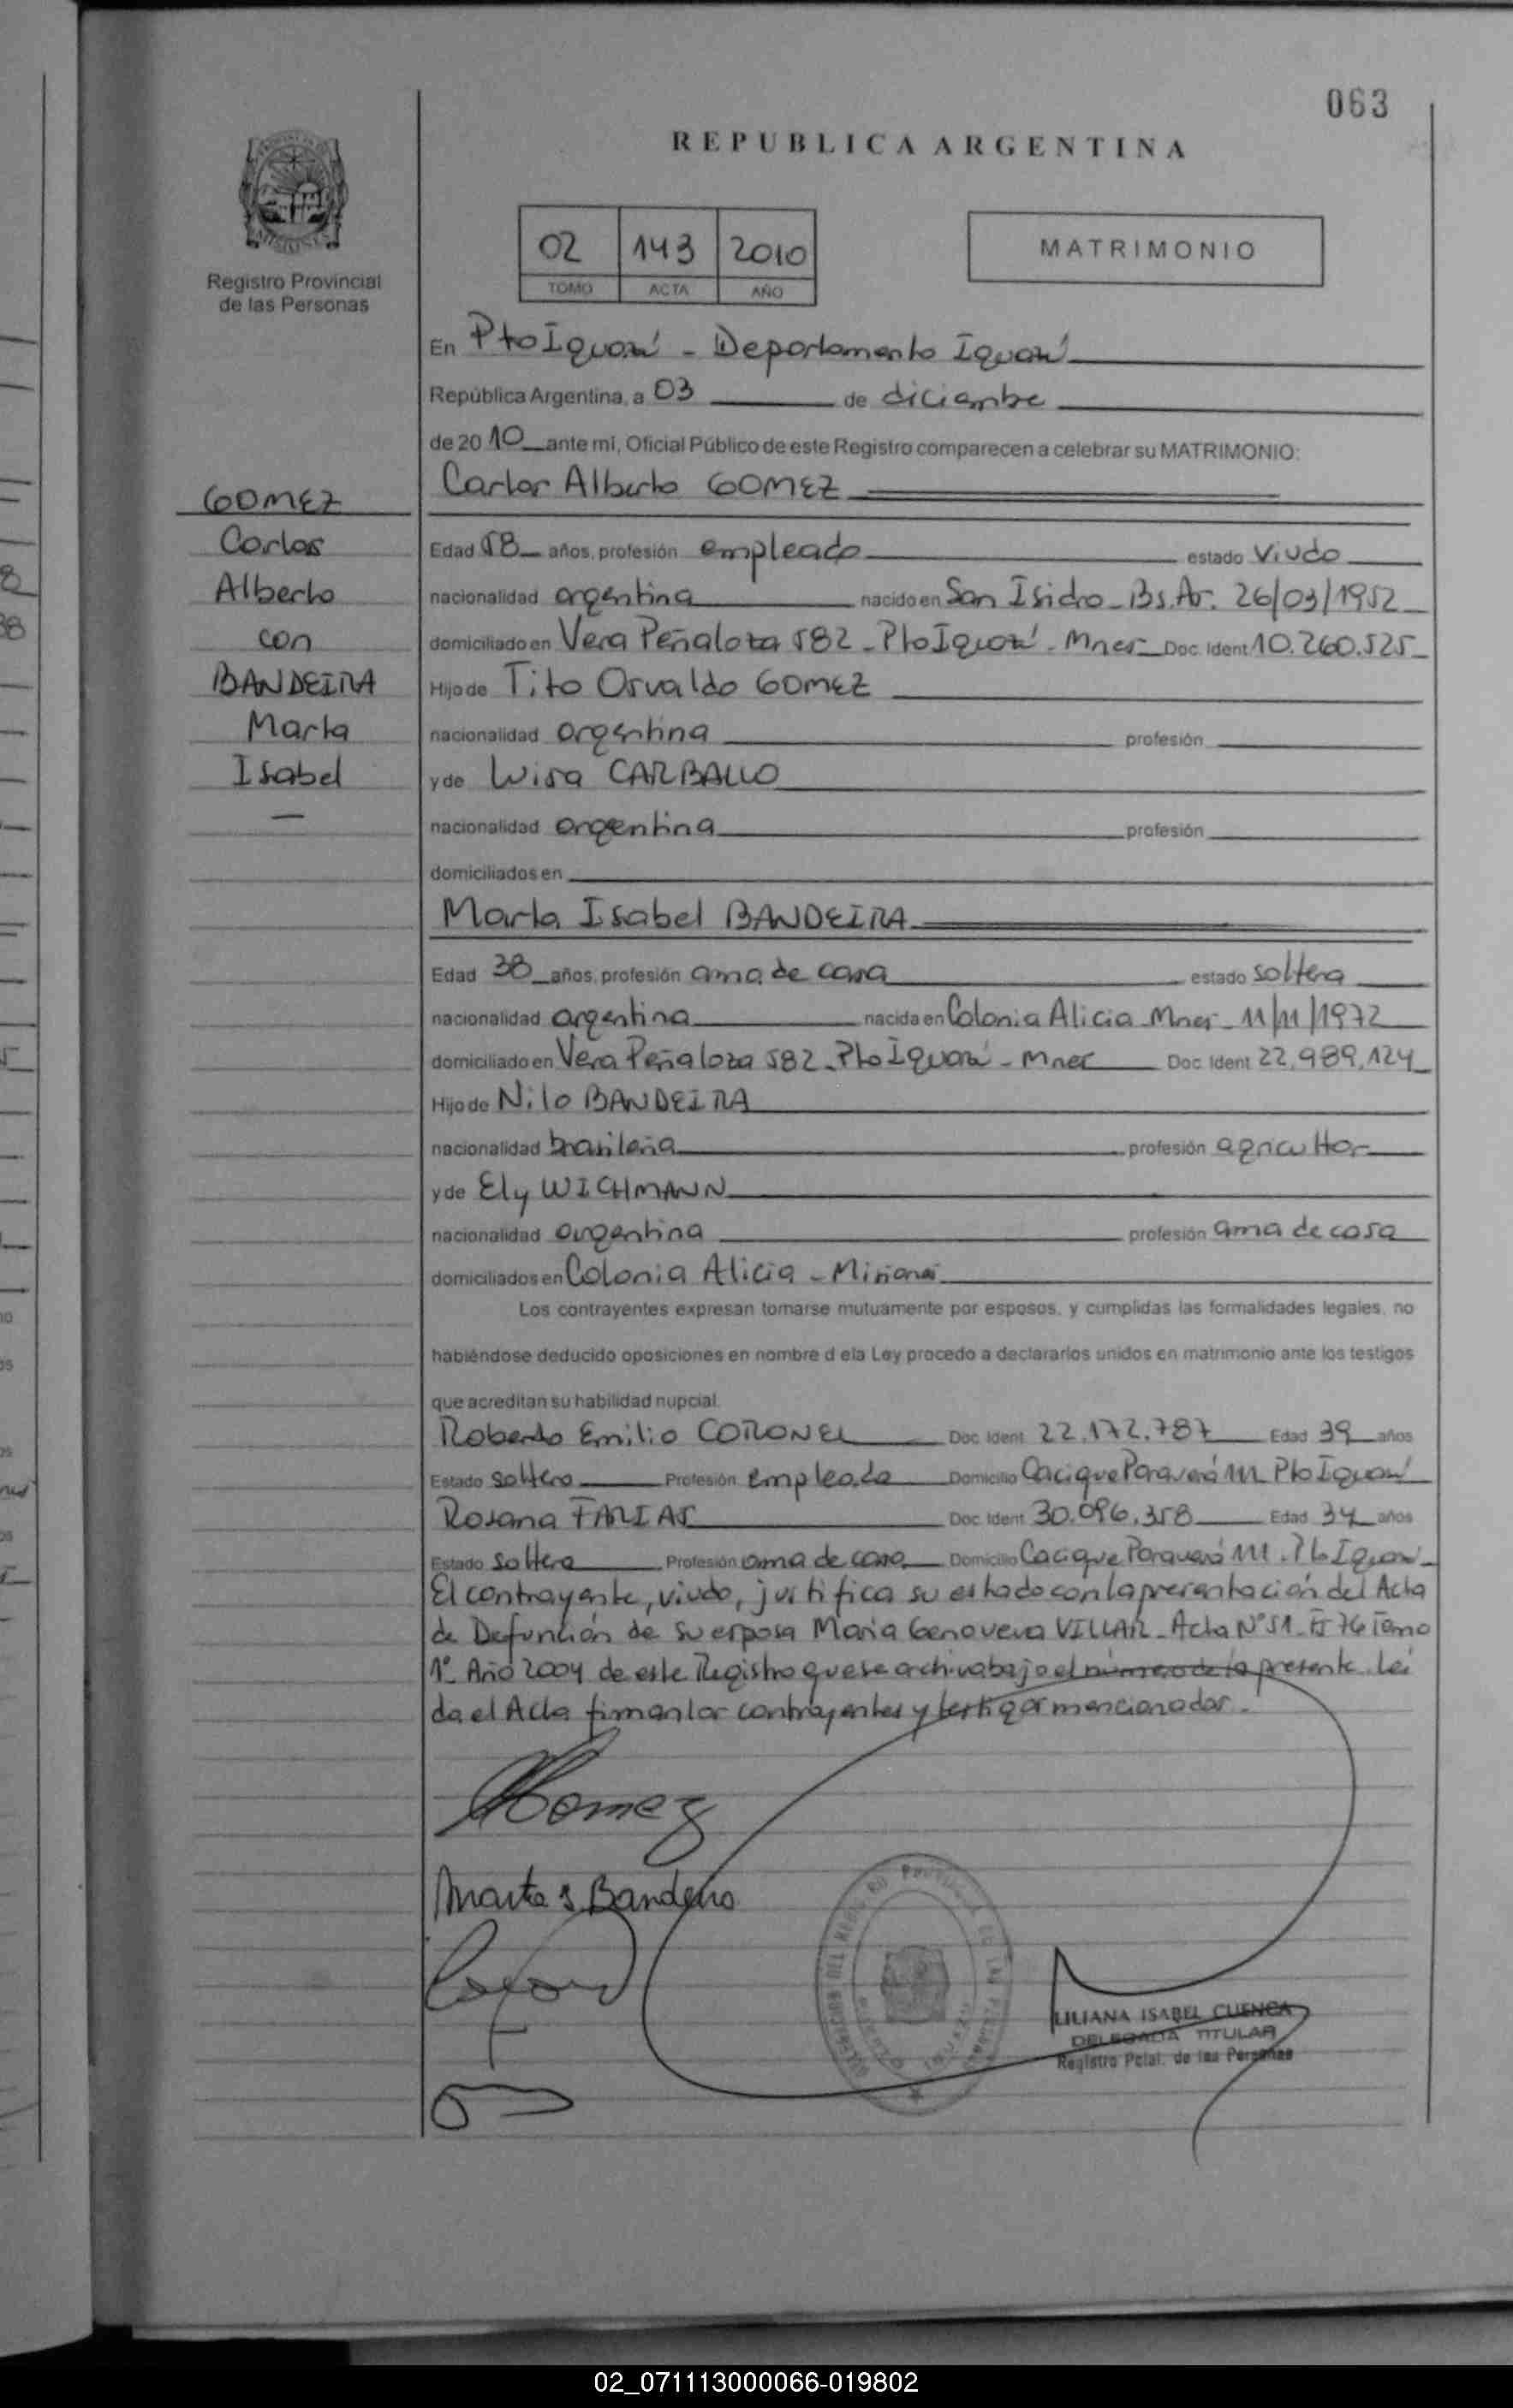 063
REPUBLICA ARGENTINA
MISIONES
Registro Provincial
de las Personas
02 143 2010
TOMO ACTA AÑO
MATRIMONIO
En Pto Iguazú - Departamento Iguazú
República Argentina, a 03 de diciembre
de 2010 ante mi, Oficial Público de este Registro comparecen a celebrar su MATRIMONIO:
Carlos Alberto GOMEZ
GOMEZ
Carlos
Alberto
con
BANDEIRA
Marta
Isabel
Edad 58 años, profesión empleado estado viudo
nacionalidad argentina nacido en San Isidro - Bs. As. 26/03/1952
domiciliado en Vera Peñaloza 582 - Pto Iguazú - Mnes Doc. Ident 10.260.525
Hijo de Tito Osvaldo GOMEZ
nacionalidad argentina profesión
y de Luisa CARBALLO
nacionalidad argentina profesión
domiciliados en
Marta Isabel BANDEIRA
Edad 38 años, profesión ama de casa estado soltera
nacionalidad argentina nacida en Colonia Alicia - Mnes - 11/11/1972
domiciliado en Vera Peñaloza 582 - Pto Iguazú - Mnes Doc. Ident 22.989.124
Hijo de Nilo BANDEIRA
nacionalidad brasileña profesión agricultor
y de Ely WICHMANN
nacionalidad argentina profesión ama de casa
domiciliados en Colonia Alicia - Misiones
Los contrayentes expresan tomarse mutuamente por esposos, y cumplidas las formalidades legales, no
habiéndose deducido oposiciones en nombre d ela Ley procedo a declararlos unidos en matrimonio ante los testigos
que acreditan su habilidad nupcial.
Roberto Emilio CORONEL Doc. Ident. 22.172.787 Edad 39 años
Estado soltero Profesión empleado Domicilio Cacique Paraguá 111 Pto Iguazú
Rosana FARIAS Doc. Ident. 30.096.358 Edad 34 años
Estado soltera Profesión ama de casa Domicilio Cacique Paraguá 111 - Pto Iguazú
El contrayente, viudo, justifica su estado con la presentación del Acta
de Defunción de su esposa Maria Genoveva VILLAR - Acta Nº 51 - Fº 76 Tomo
1º Año 2004 de este Registro que se archiva bajo el número de la presente. Leí
da el Acta firman los contrayentes y testigos mencionados.
Gomez
Marta I Bandeira
LILIANA ISABEL CUENCA
DELEGADA TITULAR
Registro Pcial. de las Personas
02_071113000066-019802